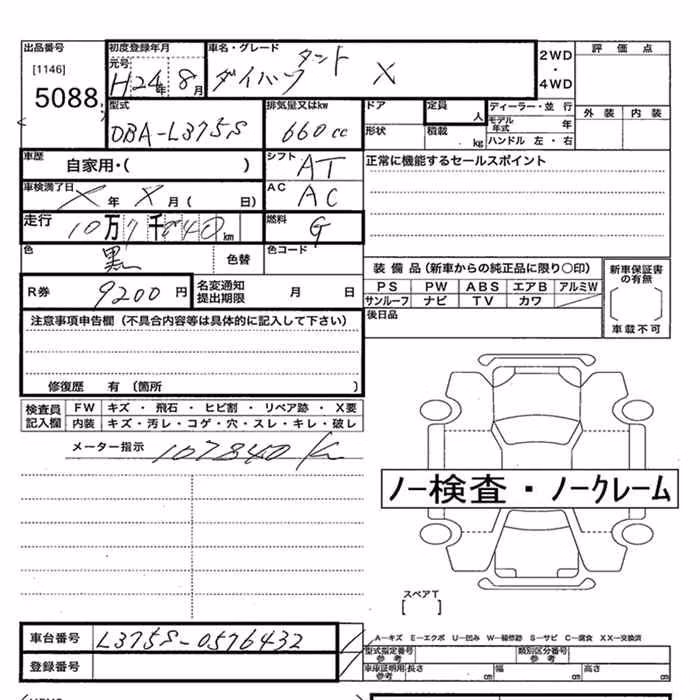 出品番号
[1146]
5088
初度登録年月
元号
H24年8月
車名・グレード
ダイハツ タント X
2WD
・
4WD
評価点
外装 内装
型式
DBA-L375S
排気量又はkw
660cc
ドア
形状
定員
人
積載
kg
ディーラー・並行
モデル年式 年
ハンドル 左・右
車歴
自家用・( )
シフト
AT
正常に機能するセールスポイント
車検満了日
X年 X月( 日)
AC
AC
走行
10万7千840km
燃料
G
色
黒
色替
色コード
装備品(新車からの純正品に限り○印)
PS PW ABS エアB アルミW
サンルーフ ナビ TV カワ
新車保証書の有無
車載不可
R券
9200円
名変通知提出期限
月 日
後日品
注意事項申告欄(不具合内容等は具体的に記入して下さい)
修復歴 有 〔箇所 〕
検査員記入欄
FW キズ・飛石・ヒビ割・リペア跡・X要
内装 キズ・汚レ・コゲ・穴・スレ・キレ・破レ
メーター指示
107840K
ノー検査・ノークレーム
スペアT
[ ]
車台番号
L375S-0576432
登録番号
A―キズ E―エクボ U―凹み W―補修跡 S―サビ C―腐食 XX―交換済
型式指定番号
参考
類別区分番号
参考
車庫証明用
参考
長さ cm 幅 cm 高さ cm